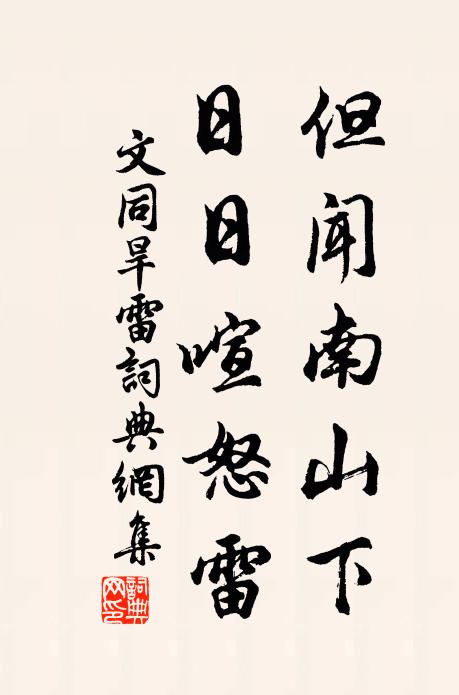 但闻南山下
日日喧怒雷
文同旱雷詞典網集
詞典
网印